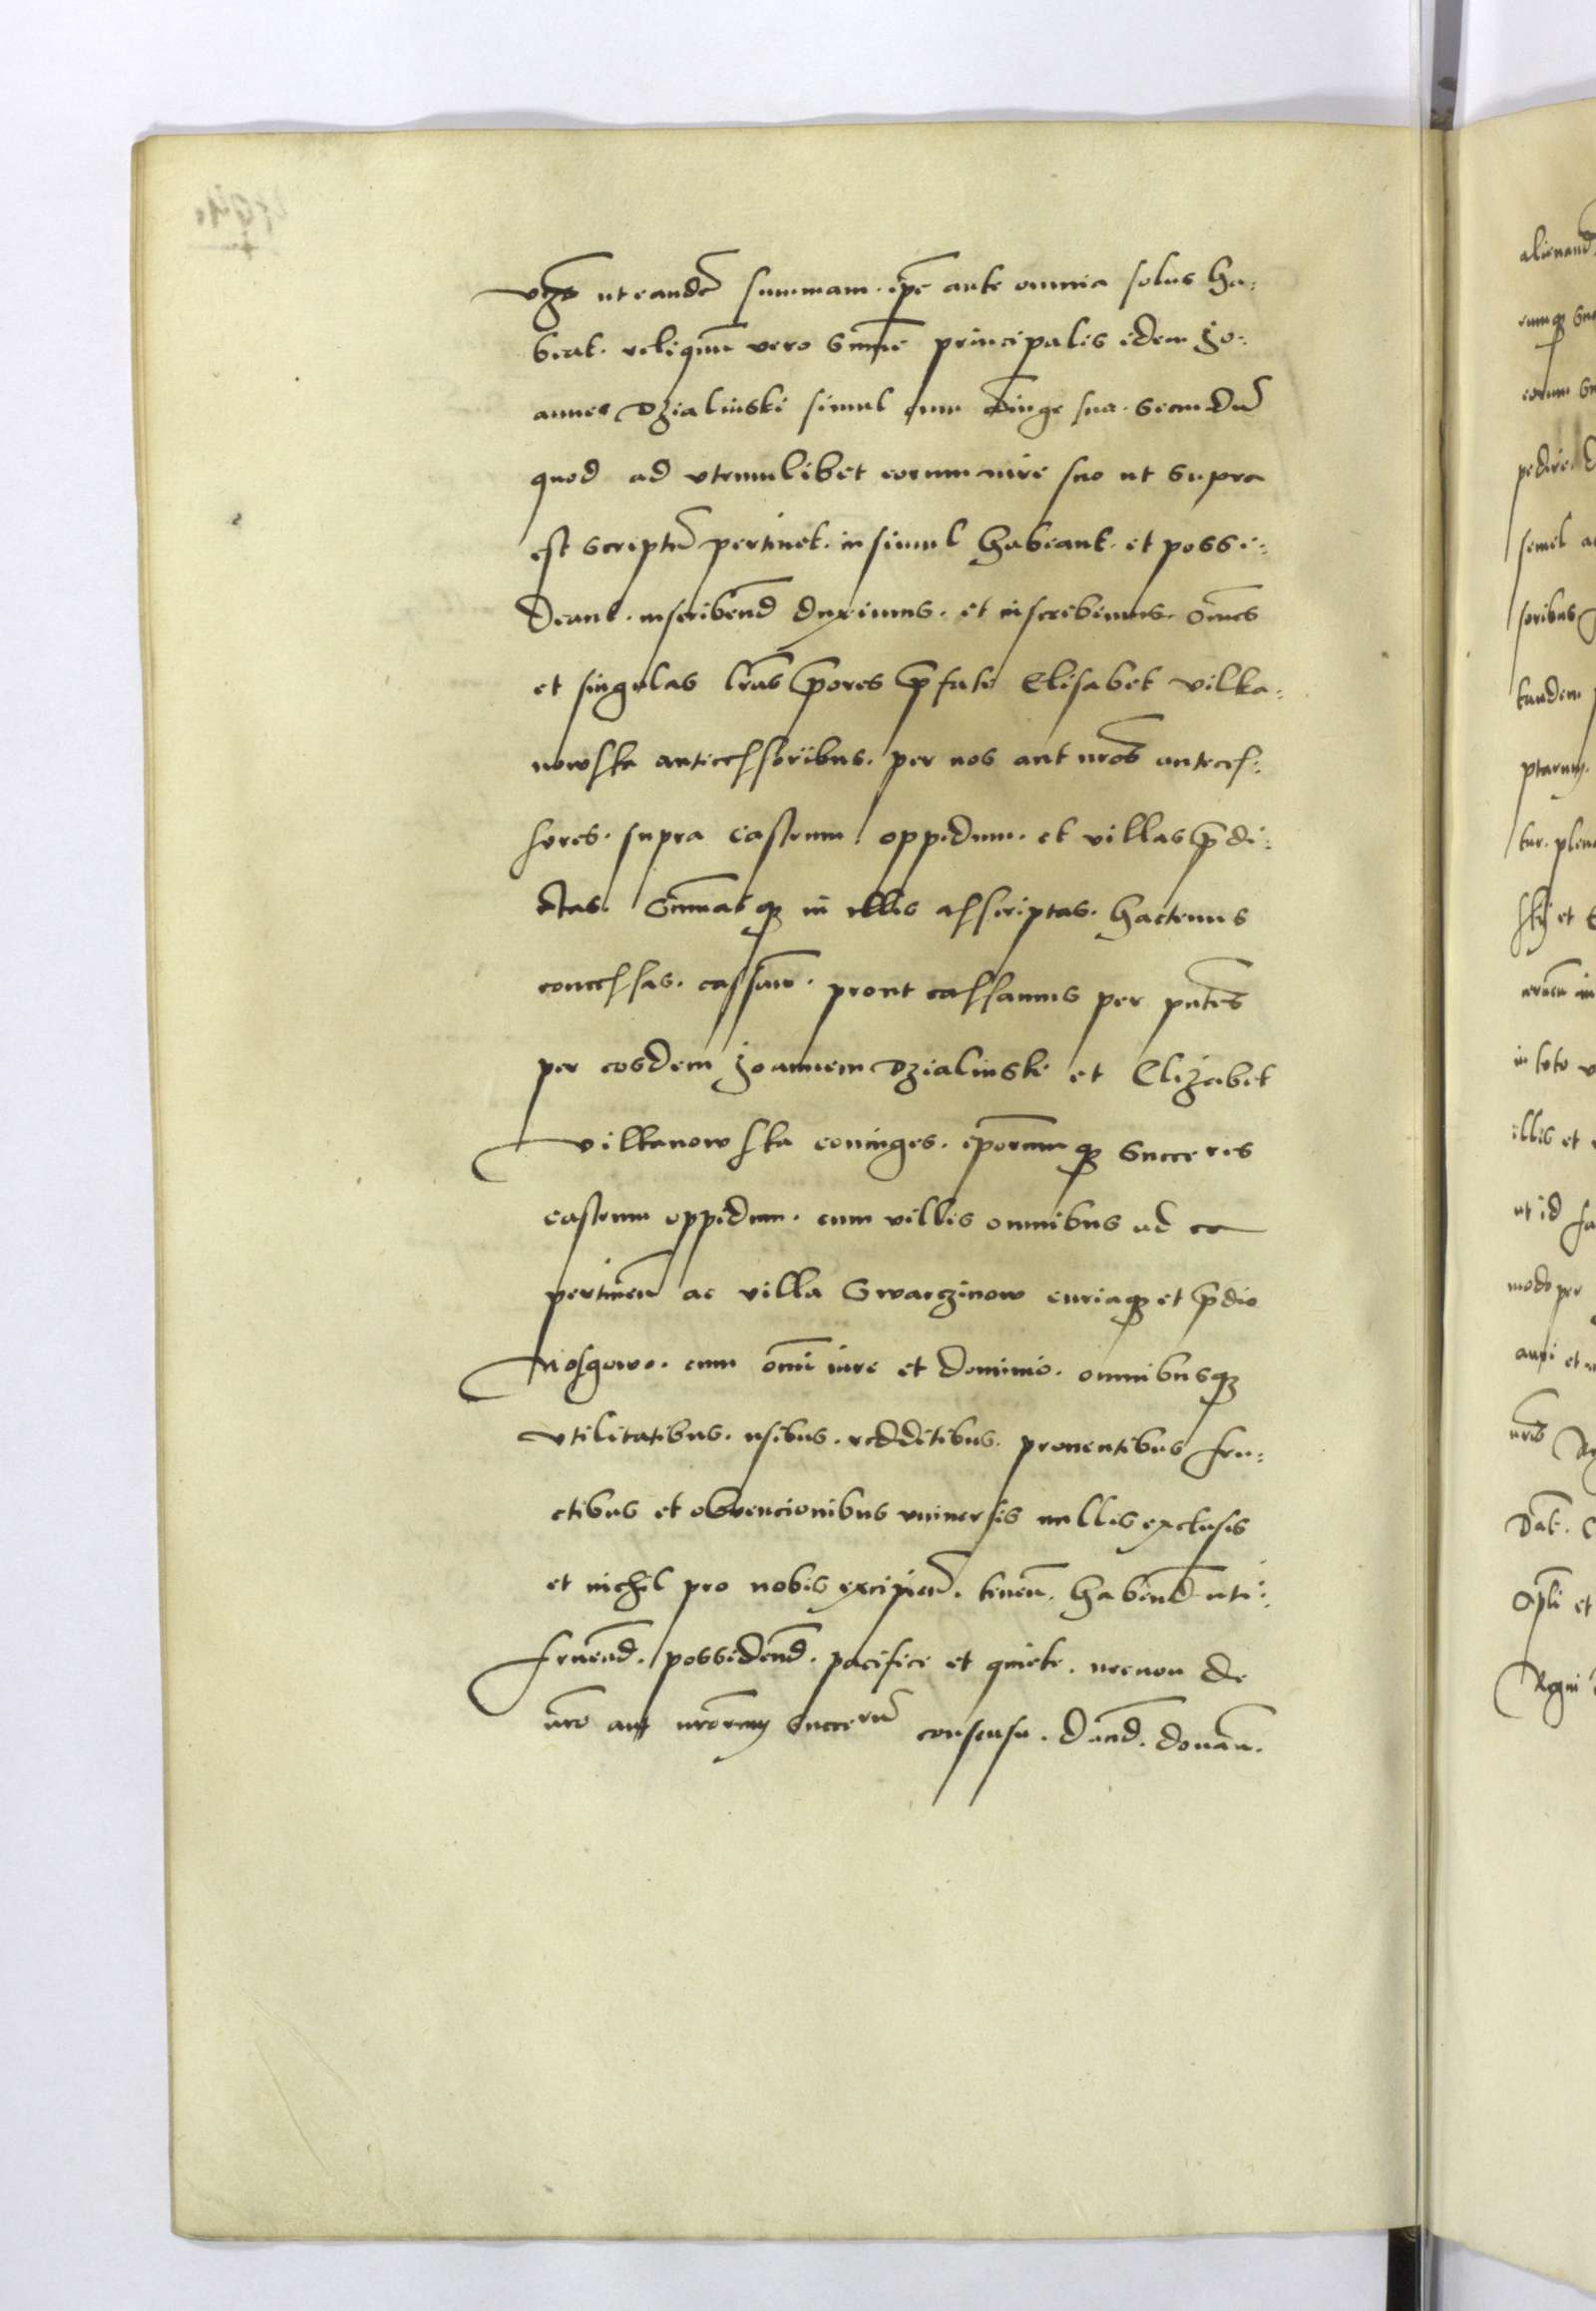 ut eandē summam. ip̄e ante omnia solus ha=
beat. reliquū vero sum̄e principalis idem Jo=
annes Dzialinski simul cum cōiuge sua. secundū
quod ad vtrumlibet eorum iure suo ut supra
est scriptū pertinet. in simul habeant. et possi=
deant. inscribend̄ duximus. et inscribimus. om̄es
et singulas lr̄as p̄ores p̄fate Elisabet vilka=
nowska anticessoribus. per nos aut nr̄os antecess=
sores. supra castrum oppidum. et villas p̄di=
ctas. sum̄asq; in illis asscriptas. hactenus
concessas. cassam̄. prout cassamus per pn̄tes
per eosdem Joannem Dzialinski et Elizabet
vilkanowska coniuges. ip̄orumq; succeres
castrum oppidum. cum villis omnibus ad ea
pertinen̄ ac villa Swarczinow curiaq; et p̄dio
Mosgowo. cum om̄i iure et dominio. omnibusq;
vtilitatibus. usibus. redditibus. prouentibus fru=
ctibus et obvencionibus vniuersis nullis exclusis
et nichil pro nobis excipien̄. tenen̄. habend̄ uti=
fruend̄. possidend̄. pacifice et quiete. necnon de
nr̄o aut nr̄orum succerū consensu. dand̄. donan̄.
alienand̄
pedire.
semel
soribus
tandem
ptarum.
tur.
skj et
in toto
illis et
ut id
modo per
auri et
nr̄is
Dat.
et
Regni